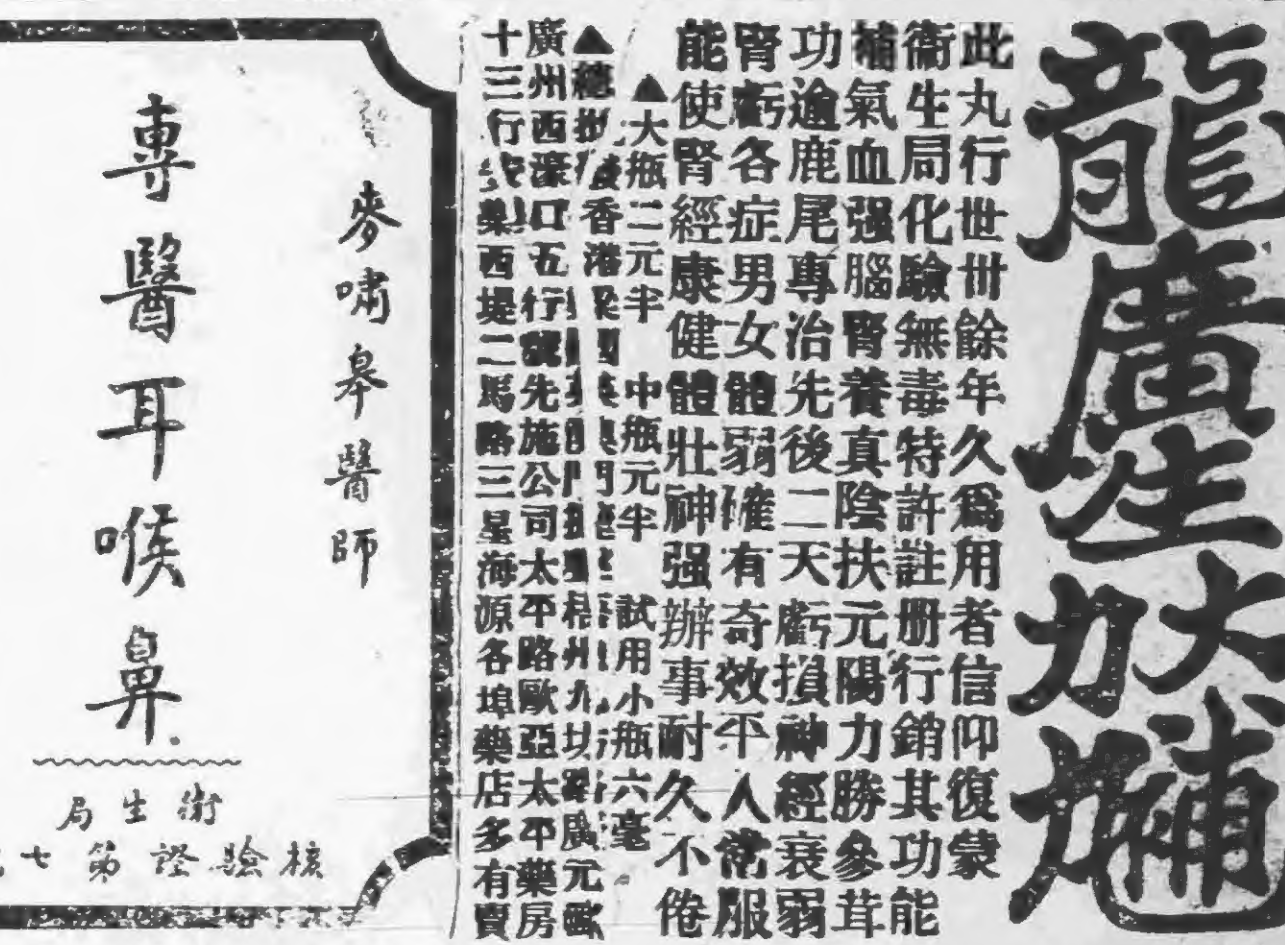 龍產大補
廣力丸
此丸行世卅餘年久爲用者信仰復蒙
衞生局化驗無毒特許註册行銷其功能
補氣血强腦腎養真陰扶元陽力勝參茸
功逾鹿尾專治先後二天虧損神經衰弱
腎虧各症男女體弱確有奇效平人常服
能使腎經康健體壯神强辦事耐久不倦
▲大瓶二元半 中瓶元半 試用小瓶六毫
▲總批發香港
廣州西濠口五行號先施公司太平路歐亞太平藥房
十三行 西堤二馬路三星海源各埠藥店多有賣
麥嘯皋醫師
專醫耳喉鼻
衛生局
核驗證第七